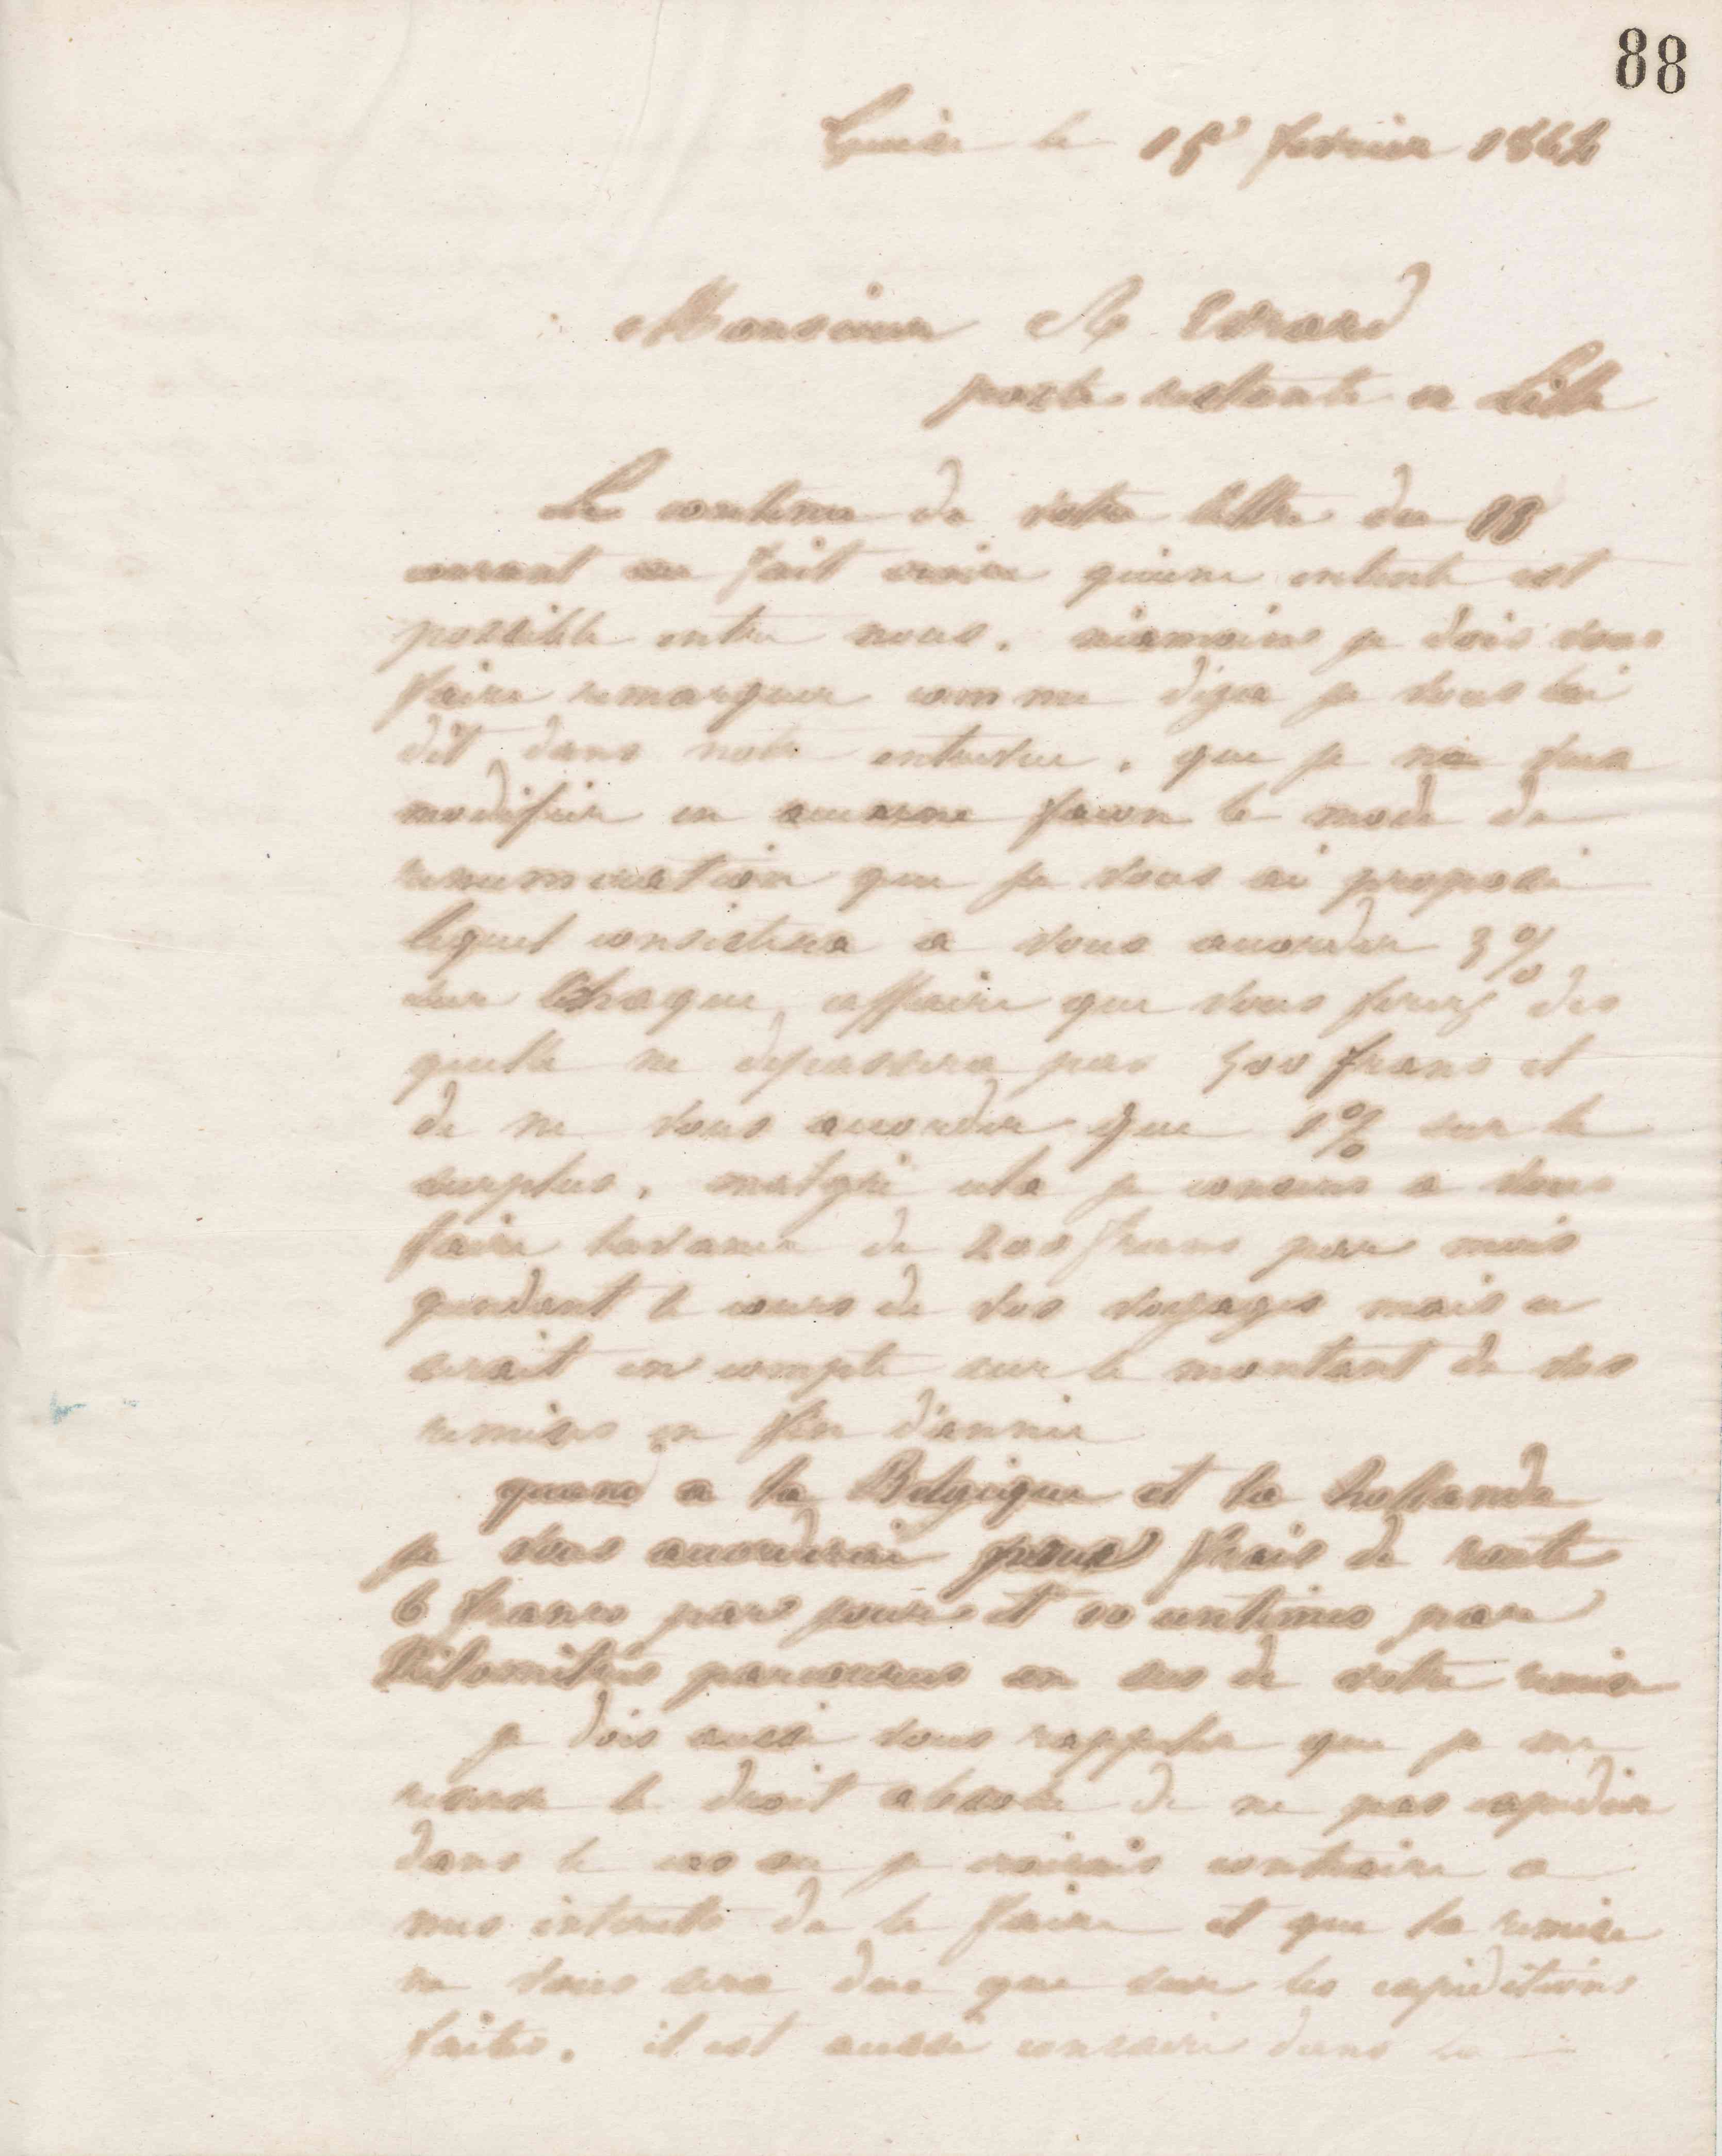 88
Guise le 15 fevrier 1862
Monsieur A Evrard
poste restante a Lille
Le contenu de votre lettre du 11
courant me fait croire qu'une entente est
possible entre nous. néamoins je dois vous
faire remarquer comme déja je vous lai
dit dans notre entrevue, que je ne veux
modifier en aucune facon le mode de
remuneration que je vous ai proposé
lequel consistera a vous accorder 3 %
sur chaque affaire que vous ferez des
quelle ne depassera pas 500 francs et
de ne vous accorder que 1 % sur le
surplus. malgré cela je consens a vous
faire lavance de 200 francs par mois
pendant le cours de vos voyages mais ce
serait en compte sur le montant de vos
remises en fin d'année
quand a la Belgique et la hollande
je vous accorderai pour frais de route
6 francs par jour et 10 centimes par
Kilomètres parcourus en sus de votre remise
je dois aussi vous rappeler que je me
reserve le droit absolu de ne pas expedier
dans le cas ou je croirais contraire a
mes interets de le faire et que la remise
ne vous sera due que sur les expeditions
faites. il est aussi dans